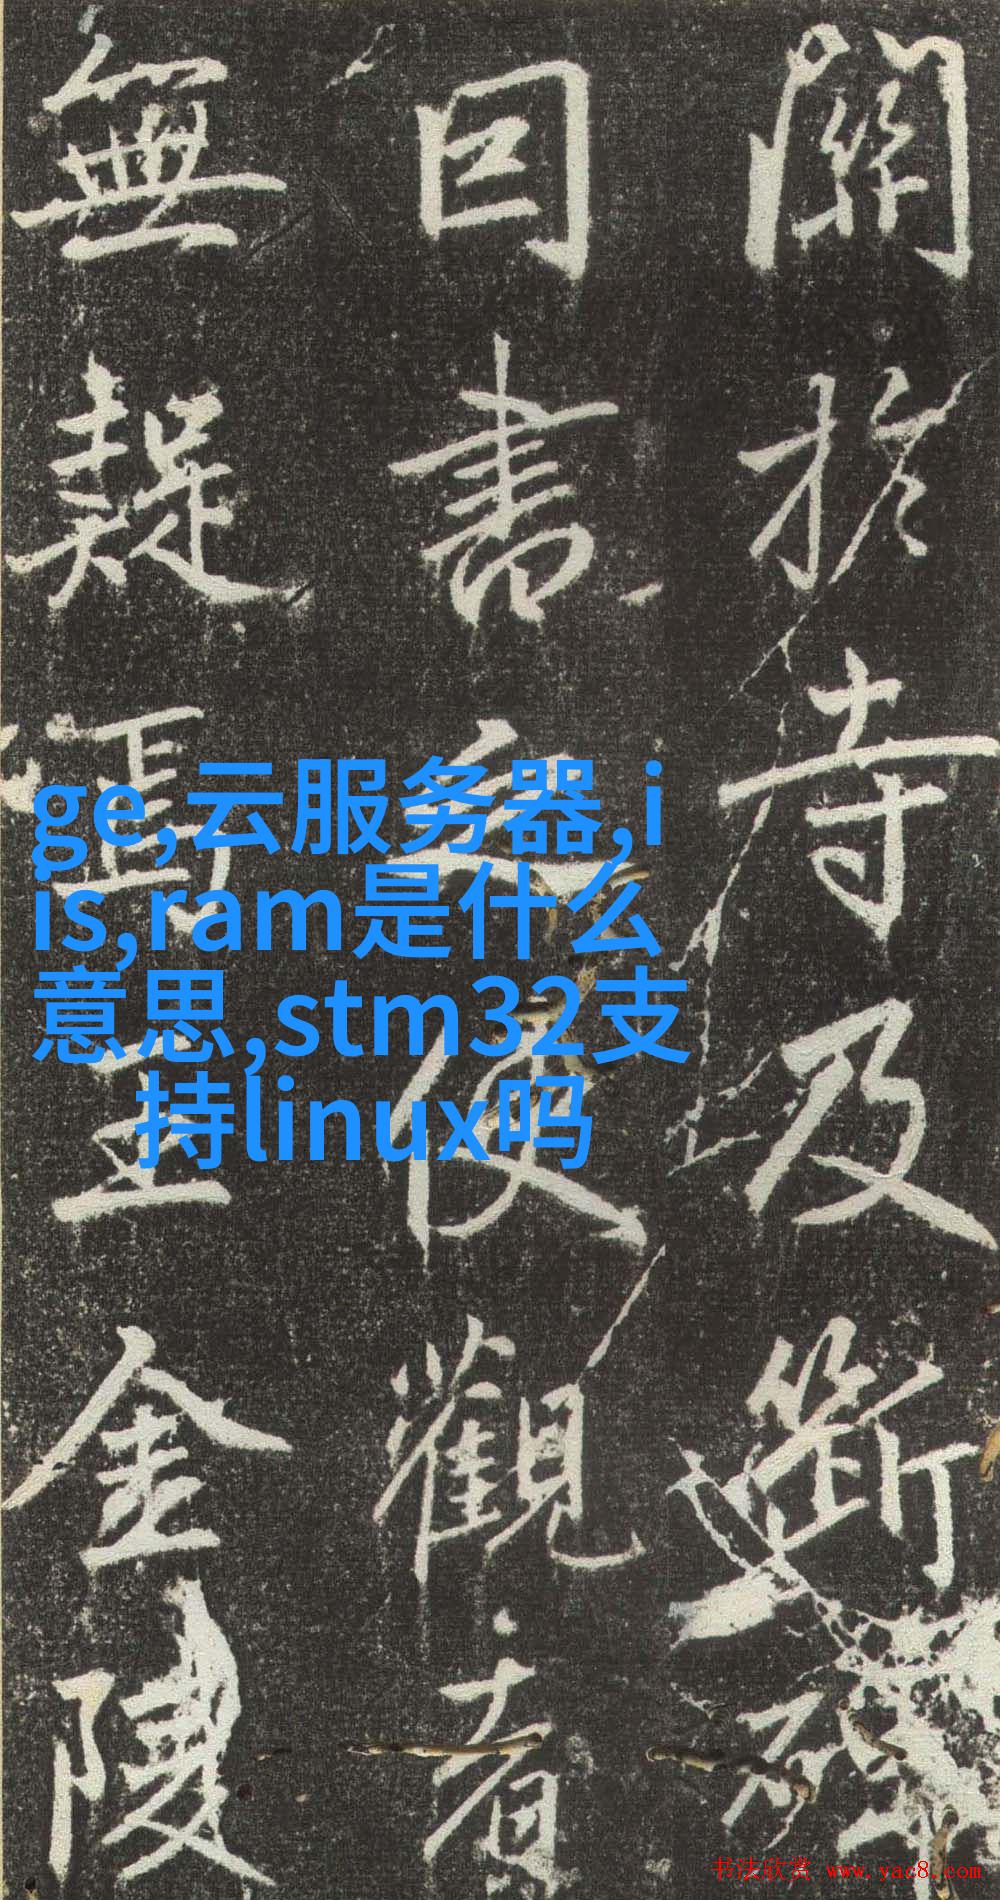 關於寺及斷碑
日書之使觀者
無疑馮王金陵
ige,云服务器,i
is,ram是什么
意思,stm32支
持linux吗
书法欣赏 www.yac8.com